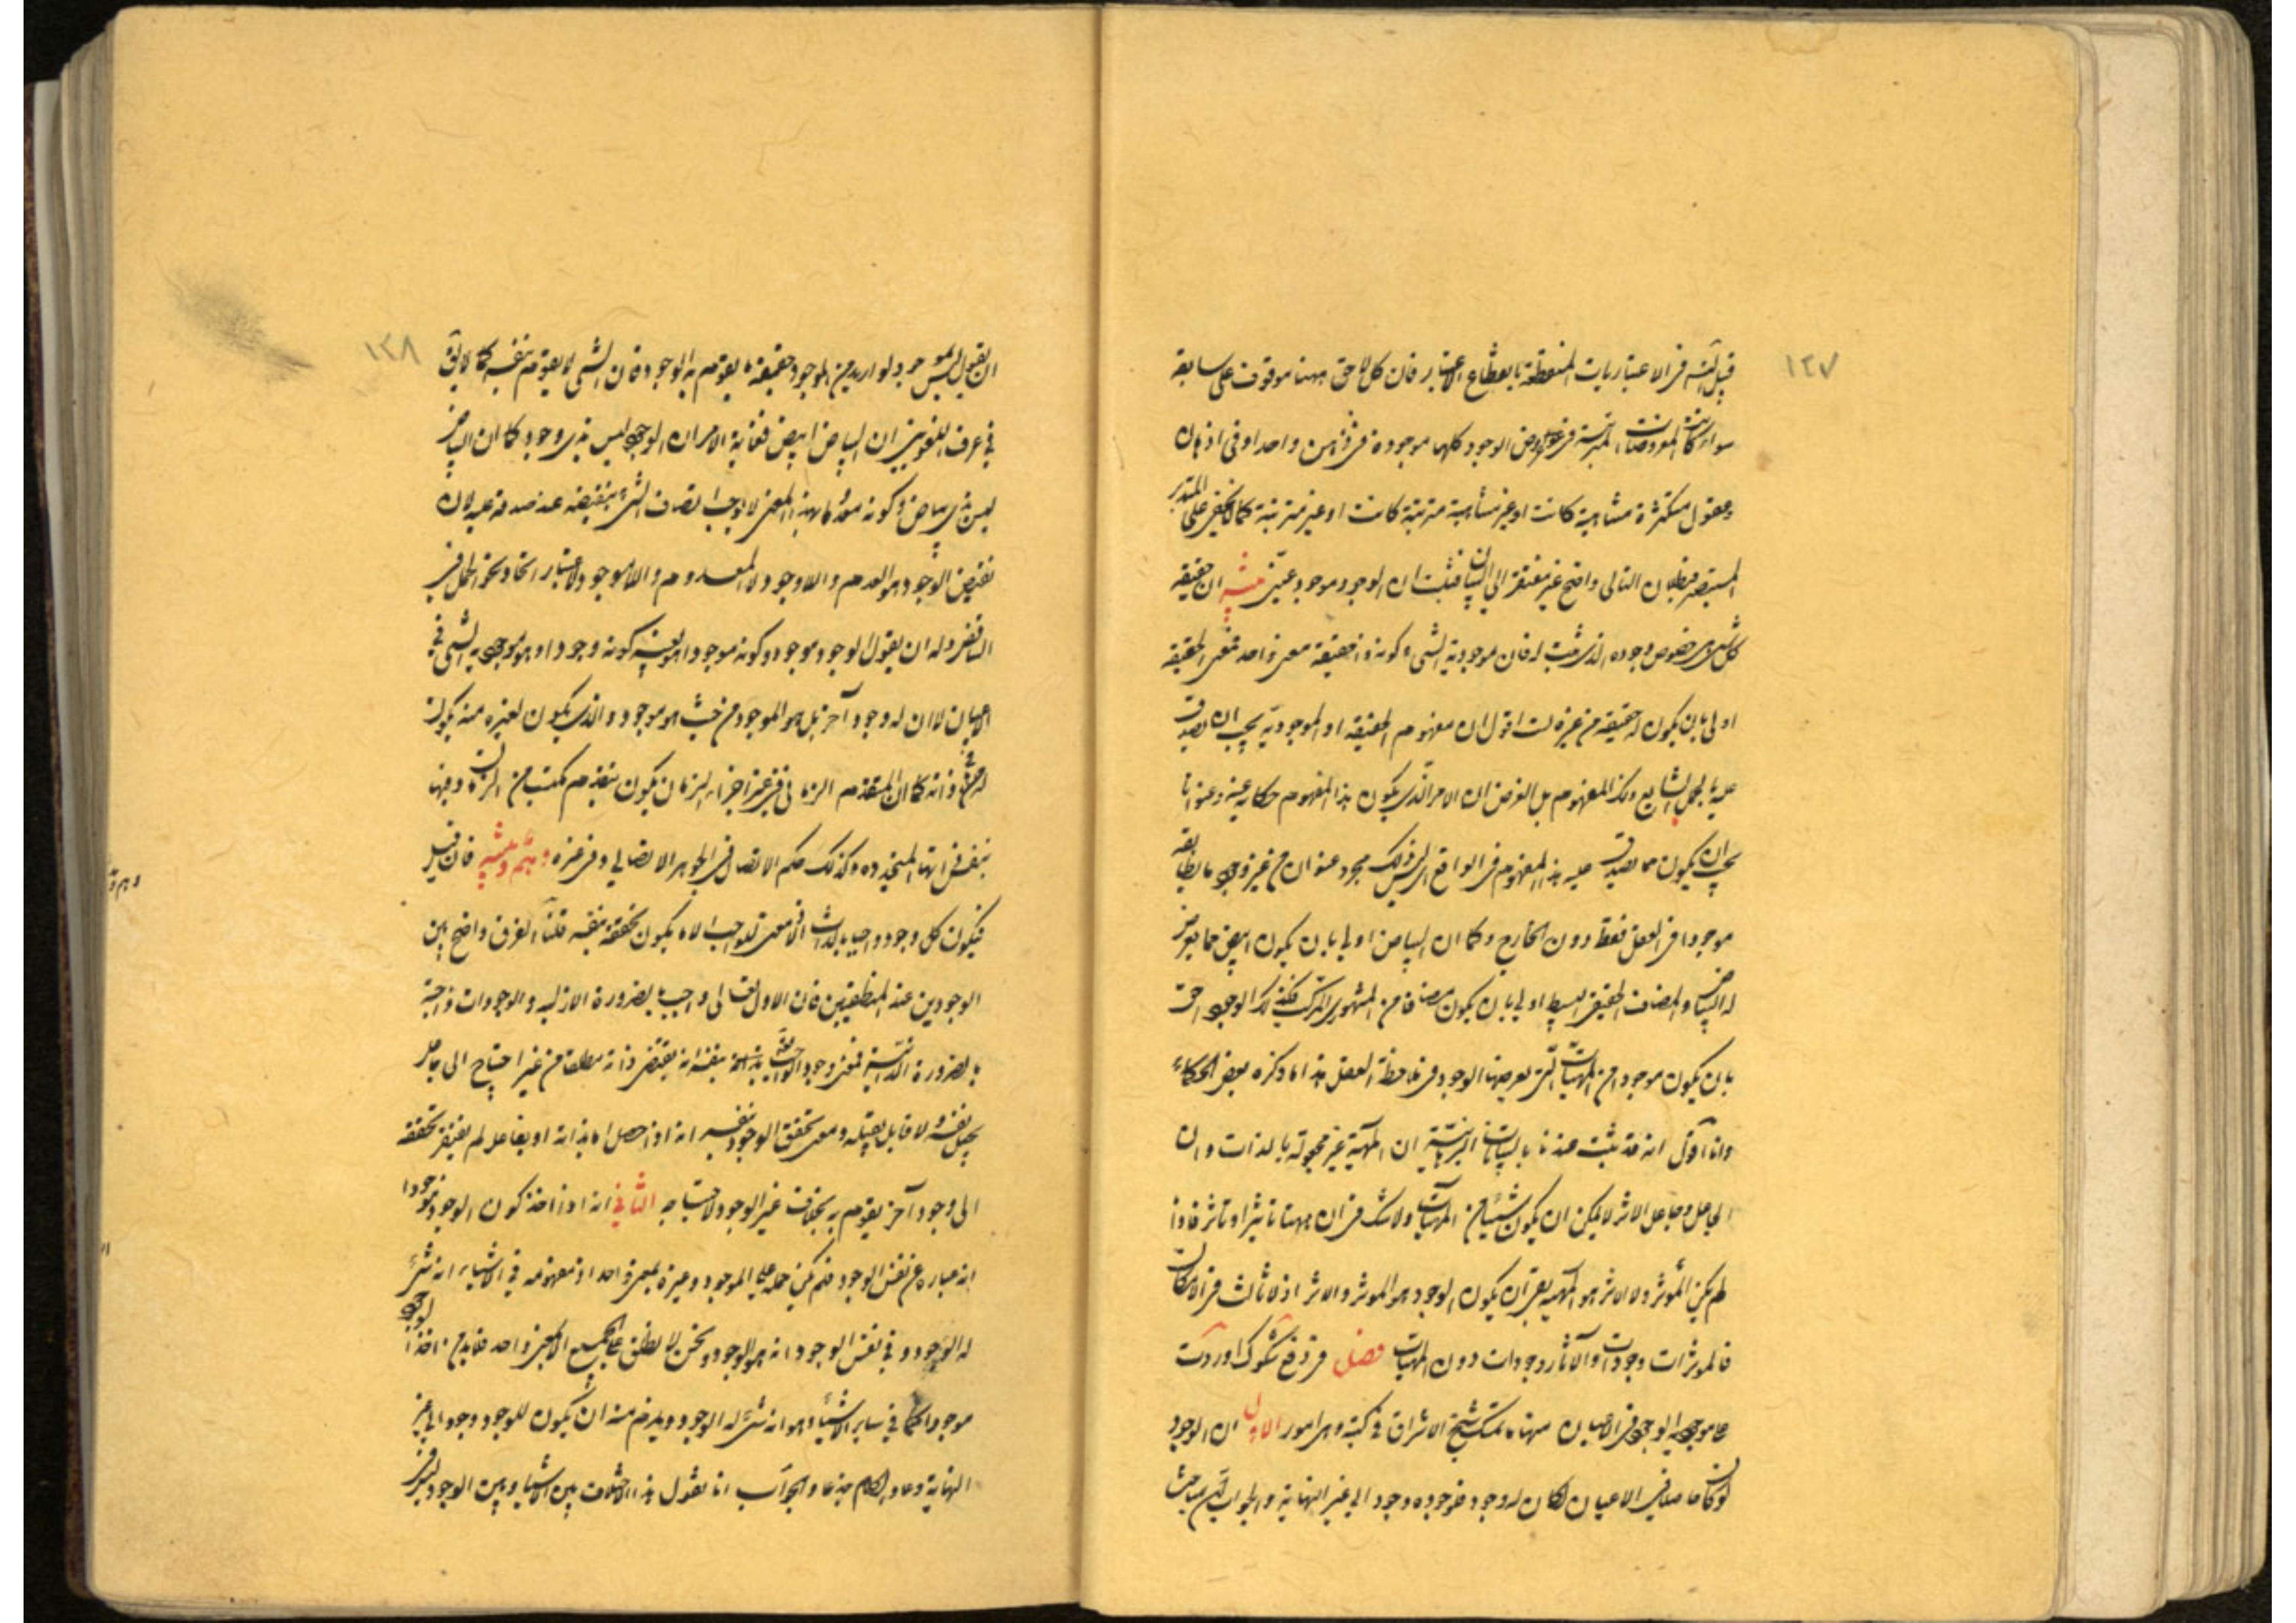 ١٢٧
قبيل التسلسل في الاعتباريات المنقطعة بانقطاع الاعتبار فان كل لاحق ههنا موقوف على سابقه
سواء كانت المعروضات المترتبة في عروض الوجود كلها موجودة في ذهن واحد او في اذهان
وعقول متكثرة متناهية كانت او غير متناهية مترتبة كانت او غير مترتبة كما لا يخفى على المتدبر
المستبصر فبطلان التالى واضح غير مفتقر الى البيان فثبت ان الوجود موجود عيني مشرقية ان حقيقة
كل شىء خصوص وجوده الذى يثبت له فان موجودية الشىء وكونه ذا حقيقة معنى واحد فمعنى الحقيقة
اولى بان يكون له حقيقة من غيره لست اقول ان مفهوم الحقيقة او الموجودية يجب ان يصدق
عليه بالحمل الشايع ذلك المفهوم بل الغرض ان الامر الذى يكون هذا المفهوم حكاية عنه وعنوانا
يجب ان يكون مما يصدق عليه هذا المفهوم في الواقع اى ليس ذلك مجرد عنوان من غير وجود ما يطابقه
موجودا في العقل فقط دون الخارج وكما ان البياض اولى بان يكون ابيض مما يعرض
له البياض والمضاف الحقيقى البسيط اولى بان يكون مضافا من المشهورى المركب فكذلك الوجود احق
بان يكون موجودا من المهيات التى يعرضها الوجود في ملاحظة العقل هذا ما ذكره بعض الحكماء
وانا اقول انه قد ثبت عندنا بالبيانات البرهانية ان المهية غير مجعولة بالذات وان
الجاعل وجاعل الاثر لا يمكن ان يكون شيئا من المهيات ولا شك في ان ههنا تاثيرا وتاثرا فاذا
لم يكن المؤثر ولا الاثر هو المهية بقى ان يكون الوجود هو الموثر والاثر اذ لا ثالث في الامكان
فالموثرات وجودات والآثار وجودات دون المهيات فصل في دفع شكوك اوردت
على موجودية الوجود في الاعيان منها ما تمسك شيخ الاشراق في كتبه وهى امور الاول ان الوجود
لو كان حاصلا في الاعيان لكان له وجود فلوجوده وجود الى غير النهاية والجواب
١٢٨
ان يقول الوجود ليس بموجود لو اريد من الموجود حقيقة ما يقوم به الوجود فان الشىء لا يقوم بنفسه كما لا يقال
في عرف اللغويين ان البياض ابيض فغاية الامر ان الوجود ليس بذى وجود كما ان البياض
ليس بذى بياض وكونه معدوما بهذا المعنى لا يوجب اتصاف الشىء بنقيضه عند صدقه عليه لان
نقيض الوجود هو العدم واللاوجود لا المعدوم واللاموجود لاعتبار اتحاد نحو الحمل في
التناقض وله ان يقول الوجود موجود وكونه موجودا هو بعينه كونه وجودا وهو موجودية الشىء في
الاعيان لا ان له وجودا آخر بل هو الموجود من حيث هو موجود والذى يكون لغيره منه يكون
له في ذاته كما ان المتقدم الزمانى في غير اجزاء الزمان يكون بتقدم مكتسب من الزمان وفيها
بنفس ذاتها المتجددة وكذلك حكم الاتصال في الجوهر الاتصالى وفى غيره وهم وتنبيه فان قيل
فيكون كل وجود واجبا بالذات اذ لا معنى للواجب الا ان يكون تحققه بنفسه قلنا الفرق واضح بين
الوجودين عند المنطقيين فان الاول تعالى واجب بالضرورة الازلية والوجودات واجبة
بالضرورة الذاتية فمعنى وجود الواجب تعالى بذاته بنفسه انه يقتضى ذاته مطلقا من غير احتياج الى جاعل
يجعل نفسه ولا قابل يقبله ومعنى تحقق الوجود بنفسه انه اذا حصل اما بذاته او بفاعل لم يفتقر تحققه
الى وجود آخر يقوم به بخلاف غير الوجود لاحتياجه الثانى انه اذا اخذ كون الوجود موجودا
انه عبارة عن نفس الوجود فلم يكن حمله على الموجود وغيره بمعنى واحد اذ مفهومه في الاشياء انه شىء
له الوجود وفي نفس الوجود انه هو الوجود ونحن لا نطلق على الجميع الا بمعنى واحد فلابد من اخذ الوجود
موجودا كما في ساير الاشياء وهو انه شىء له الوجود ويلزم منه ان يكون للوجود وجود الى غير
النهاية وعاد الكلام جذعا والجواب انا نقول هذا الاختلاف بين الاشياء وبين الوجود ليس في